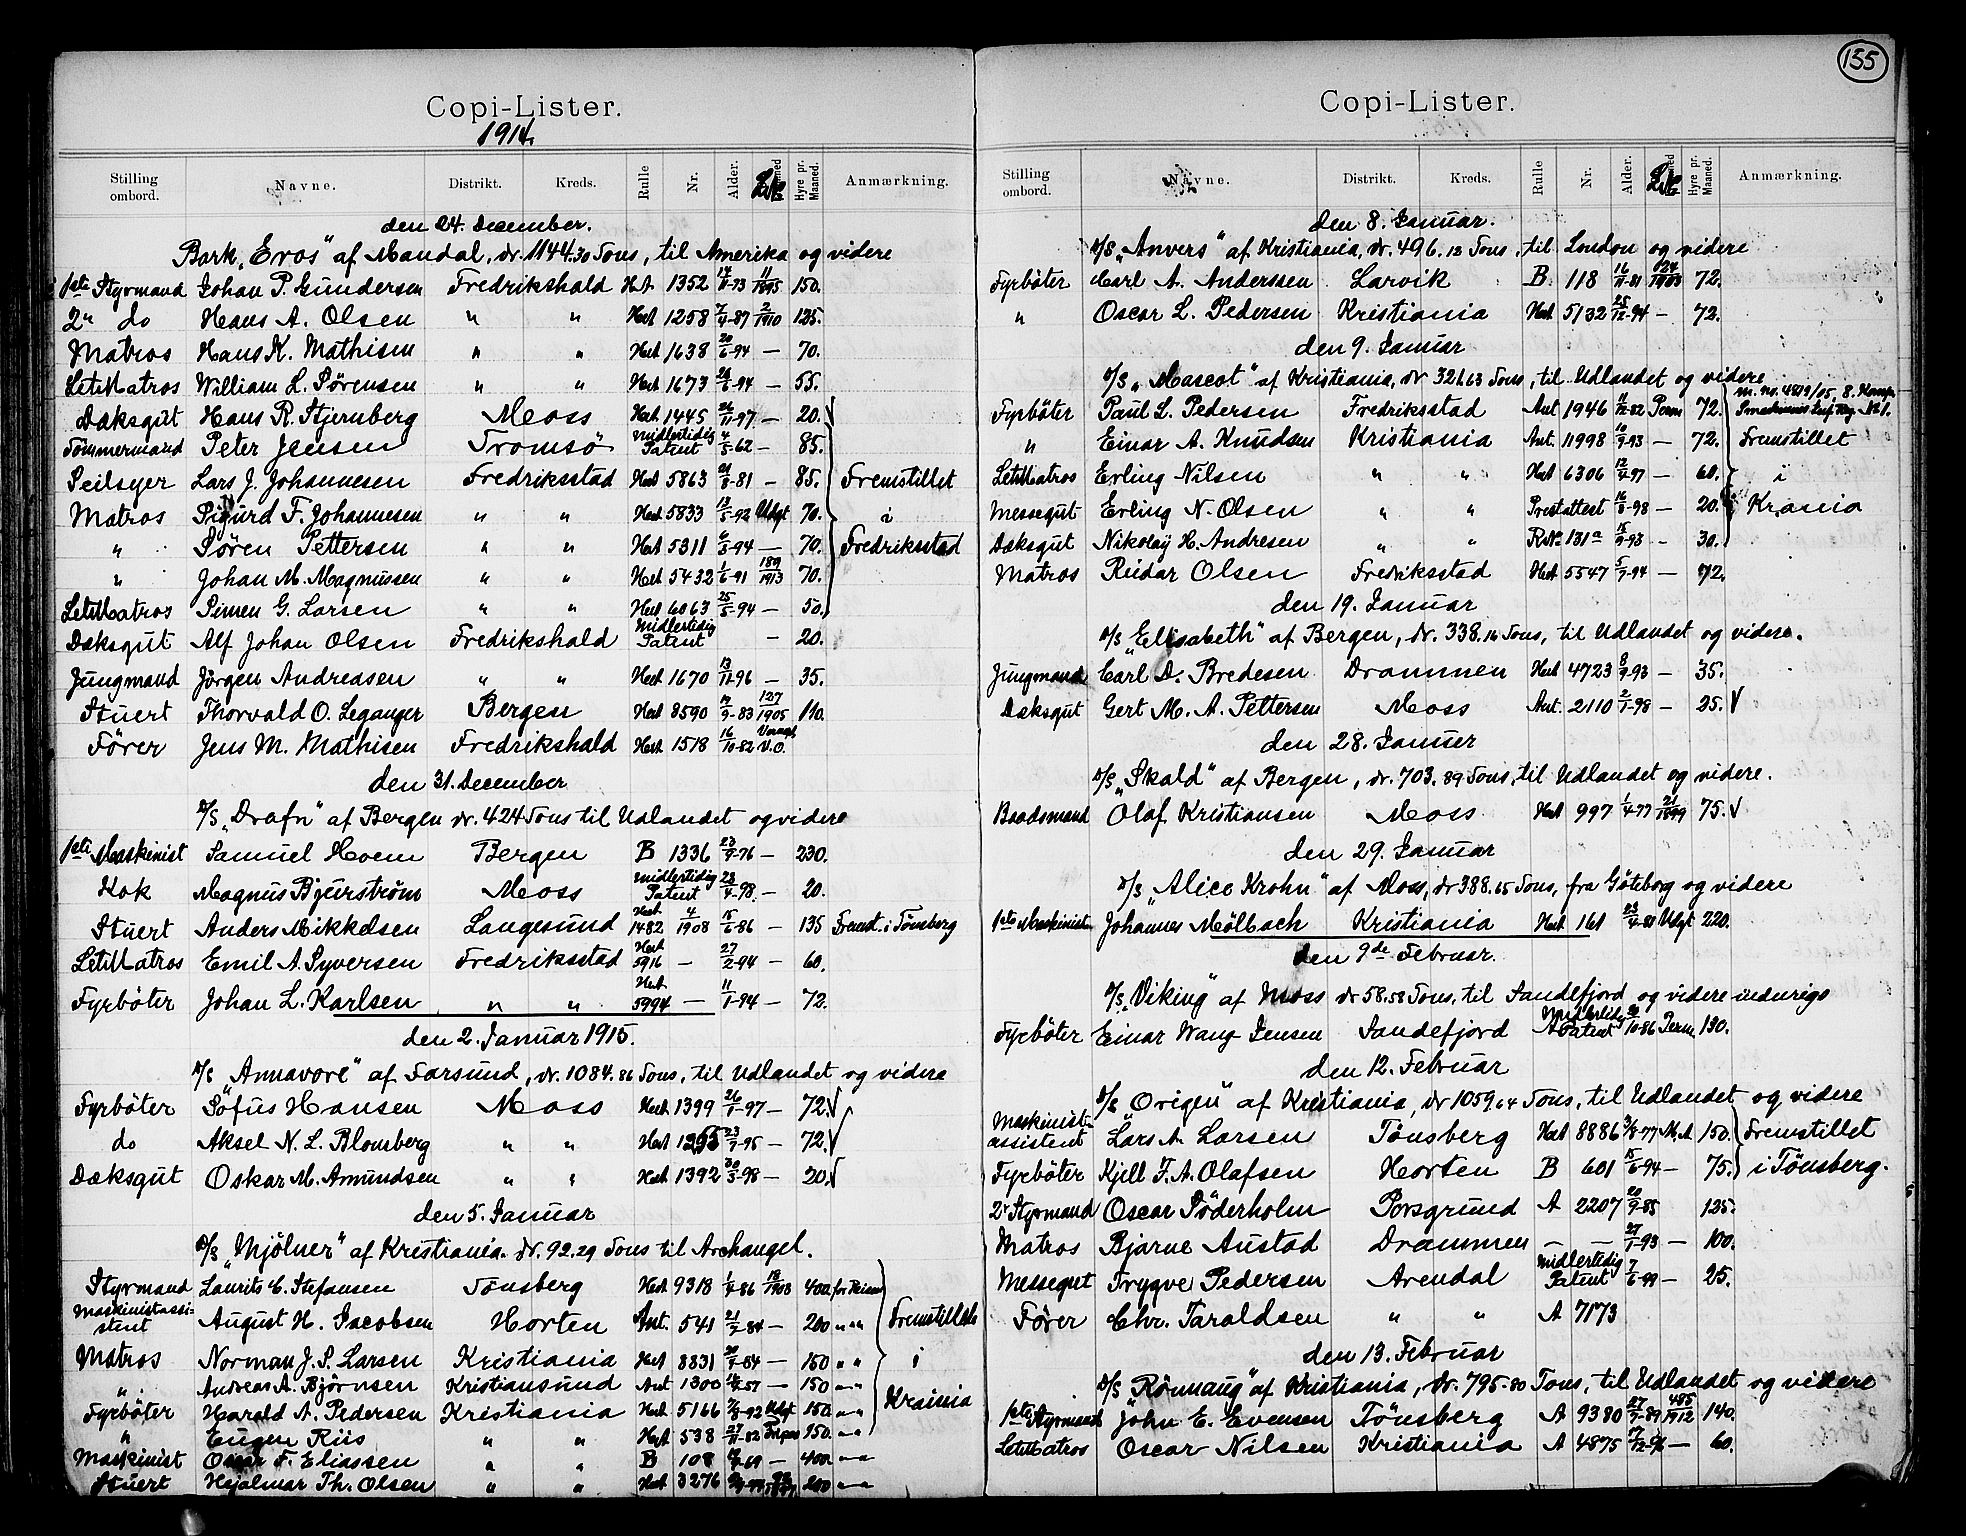 155
Copi-Lister.
1914.
Stilling ombord. Navne. Distrikt. Kreds. Rulle Nr. Alder. Hyre pr. Maaned. Anmærkning.
den 24. December.
Bark „Eros" af Mandal, dr. 1144.30 Tons, til Amerika og videre
1ste Styrmand Johan P. Gundersen Fredrikshald 1352 11/1895 150.
2n do Hans A. Olsen " " Hect 1258 7/4-87 2/1910 125.
Matros Hans K. Mathisen " " Hect 1638 20/6-94 — 70.
LetMatros William L. Sörensen " " Hect 1673 — 55.
Dæksgut Hans R. Stjernberg Moss Hect 1445 — 20.
Tömmermand Peter Jensen Tromsö Midlertidig Patent 4/5-62 — 85.
Seilsyer Lars J. Johannesen Fredriksstad Hect 5863 — 85. Fremstillet
Matros Sigurd F. Johannesen " " Hect 5833 13/5-92 Udgt 70. i
" Sören Pettersen " " Hect 5311 — 70. Fredriksstad
" Johan M. Magnussen " " Hect 5432 1/6-91 189/1913 70.
LetMatros Simen G. Larsen " " Hect 6063 25/5-94 — 50.
Dæksgut Alf Johan Olsen Fredrikshald Midlertidig Patent — 20.
Jungmand Jörgen Andreasen " " Hect 1670 13/11-96 — 35.
Stuert Thorvald O. Leganger Bergen Hect 8590 127/1905 110.
Förer Jens M. Mathisen Fredrikshald Hect 1518 16/10-82 V.O.
den 31. December
D/S „Drafn" af Bergen dr. 424 Tons til Udlandet og videre
1ste Maskinist Samuel Hoem Bergen B 1336 — 230.
Kok Magnus Bjurström Moss Midlertidig Patent 23/4-98 — 20.
Stuert Anders Mikkelsen Langesund Hect 1482 4/1908 15/6-86 — 135 Fremst. i Tönsberg
LetMatros Emil A. Syversen Fredriksstad Hect 5916 — 27/2-94 — 60.
Fyrböter Johan L. Karlsen " " Hect 5994 — 11/1-94 — 72.
den 2. Januar 1915.
D/S „Annavore" af Farsund, dr. 1084.86 Tons, til Udlandet og videre
Fyrböter Sofus Hansen Moss Hect 1399 26/1-97 — 72.
do Aksel N. L. Blomberg " " Hect — 72.
Dæksgut Oskar M. Amundsen " " Hect 1392 30/3-98 — 20.
den 5. Januar
D/S „Mjölner" af Kristiania. dr. 92.29 Tons til Archangel.
Styrmand Laurits C. Stefansen Tönsberg Hect 9318 400
Maskinistassistent August H. Jacobsen Horten Ant. 541 — 200 " " Fremstillede
Matros Norman J. S. Larsen Kristiania Hect 8831 — 150 " " i
" Andreas A. Björnsen Kristiansund Ant 1300 — 150 " "
Fyrböter Harald A. Pedersen Kristiania Hect 5166 Udgt 150 " " Krainia
" Eugen Riis " " Hect 538 150. " "
Maskinist Oscar F. Eliassen " " B 108 — 400 " "
Stuert Hjalmar Th. Olsen " " Hect 3276 200 " "
Copi-Lister.
Stilling ombord. Navne. Distrikt. Kreds. Rulle Nr. Alder. Hyre pr. Maaned. Anmærkning.
den 8. Januar.
D/S „Anvers" af Kristiania, dr. 496.12 Tons, til London og videre
Fyrböter Carl A. Anderssen Larvik B 118 16/11-81 24/1903 72.
" Oscar L. Pedersen Kristiania Hect 5132 25/12-94 — 72.
den 9. Januar
D/S „Mascot" af Kristiania, dr 321.63 Tons, til Udlandet og videre
Fyrböter Paul L. Pedersen Fredriksstad Ant 1946 72.
" Einar A. Knudsen Kristiania Ant. 11998 — 72. Fremstillet
LetMatros Erling Nilsen " " Hect 6306 — 60. i
Messegut Erling N. Olsen " " Prestattest — 20. Krania
Dæksgut Nikolay H. Andresen " " 131a — 30.
Matros Reidar Olsen Fredriksstad Hect 5547 — 72.
den 19. Januar
D/S „Elisabeth" af Bergen, dr. 338.16 Tons, til Udlandet og videre.
Jungmand Carl D. Bredesen Drammen Hect 4723 8/9-93 — 35.
Dæksgut Gert M. A. Pettersen Moss Ant. 2110 2/1-98 — 25.
den 28. Januar
D/S „Skald" af Bergen, dr. 703.89 Tons, til Udlandet og videre.
Baadsmand Olaf Kristiansen Moss Hect 997 1/4-77 21/1899 75.
den 29. Januar
D/S „Alice Krohn" af Moss, dr 388.65 Tons, fra Göteborg og videre
1ste Maskinist Johannes Mölbach Kristiania Hect 161 Udgt 220.
den 9de Februar.
D/S „Viking" af Moss dr 58.58 Tons, til Sandefjord og videre indenrigs
Fyrböter Einar Wang Jensen Sandefjord Midlertidig Patent 130.
den 12. Februar
D/S „Origen" af Kristiania, dr 1059.64 Tons, til Udlandet og videre
Maskinist-assistent Lars A. Larsen Tönsberg Hect 8886 M.A 150. Fremstillet
Fyrböter Kjell F. A. Olafsen Horten B 601 15/6-94 — 75. i Tönsberg.
2n Styrmand Oscar Söderholm Porsgrund A 2207 20/9-85 135.
Matros Bjarne Austad Drammen — — 27/1-93 — 100.
Messegut Trygve Pedersen Arendal Midlertidig Patent 7/6-99 — 25.
Förer Chr. Taraldsen " " A 7173
den 13. Februar
D/S „Rönnaug" af Kristiania, dr. 795.80 Tons, til Udlandet og videre
1ste Styrmand John E. Evensen Tönsberg A 9380 27/9-89 485/1912 140.
LetMatros Oscar Nilsen Kristiania A 4875 17/12-96 — 60.